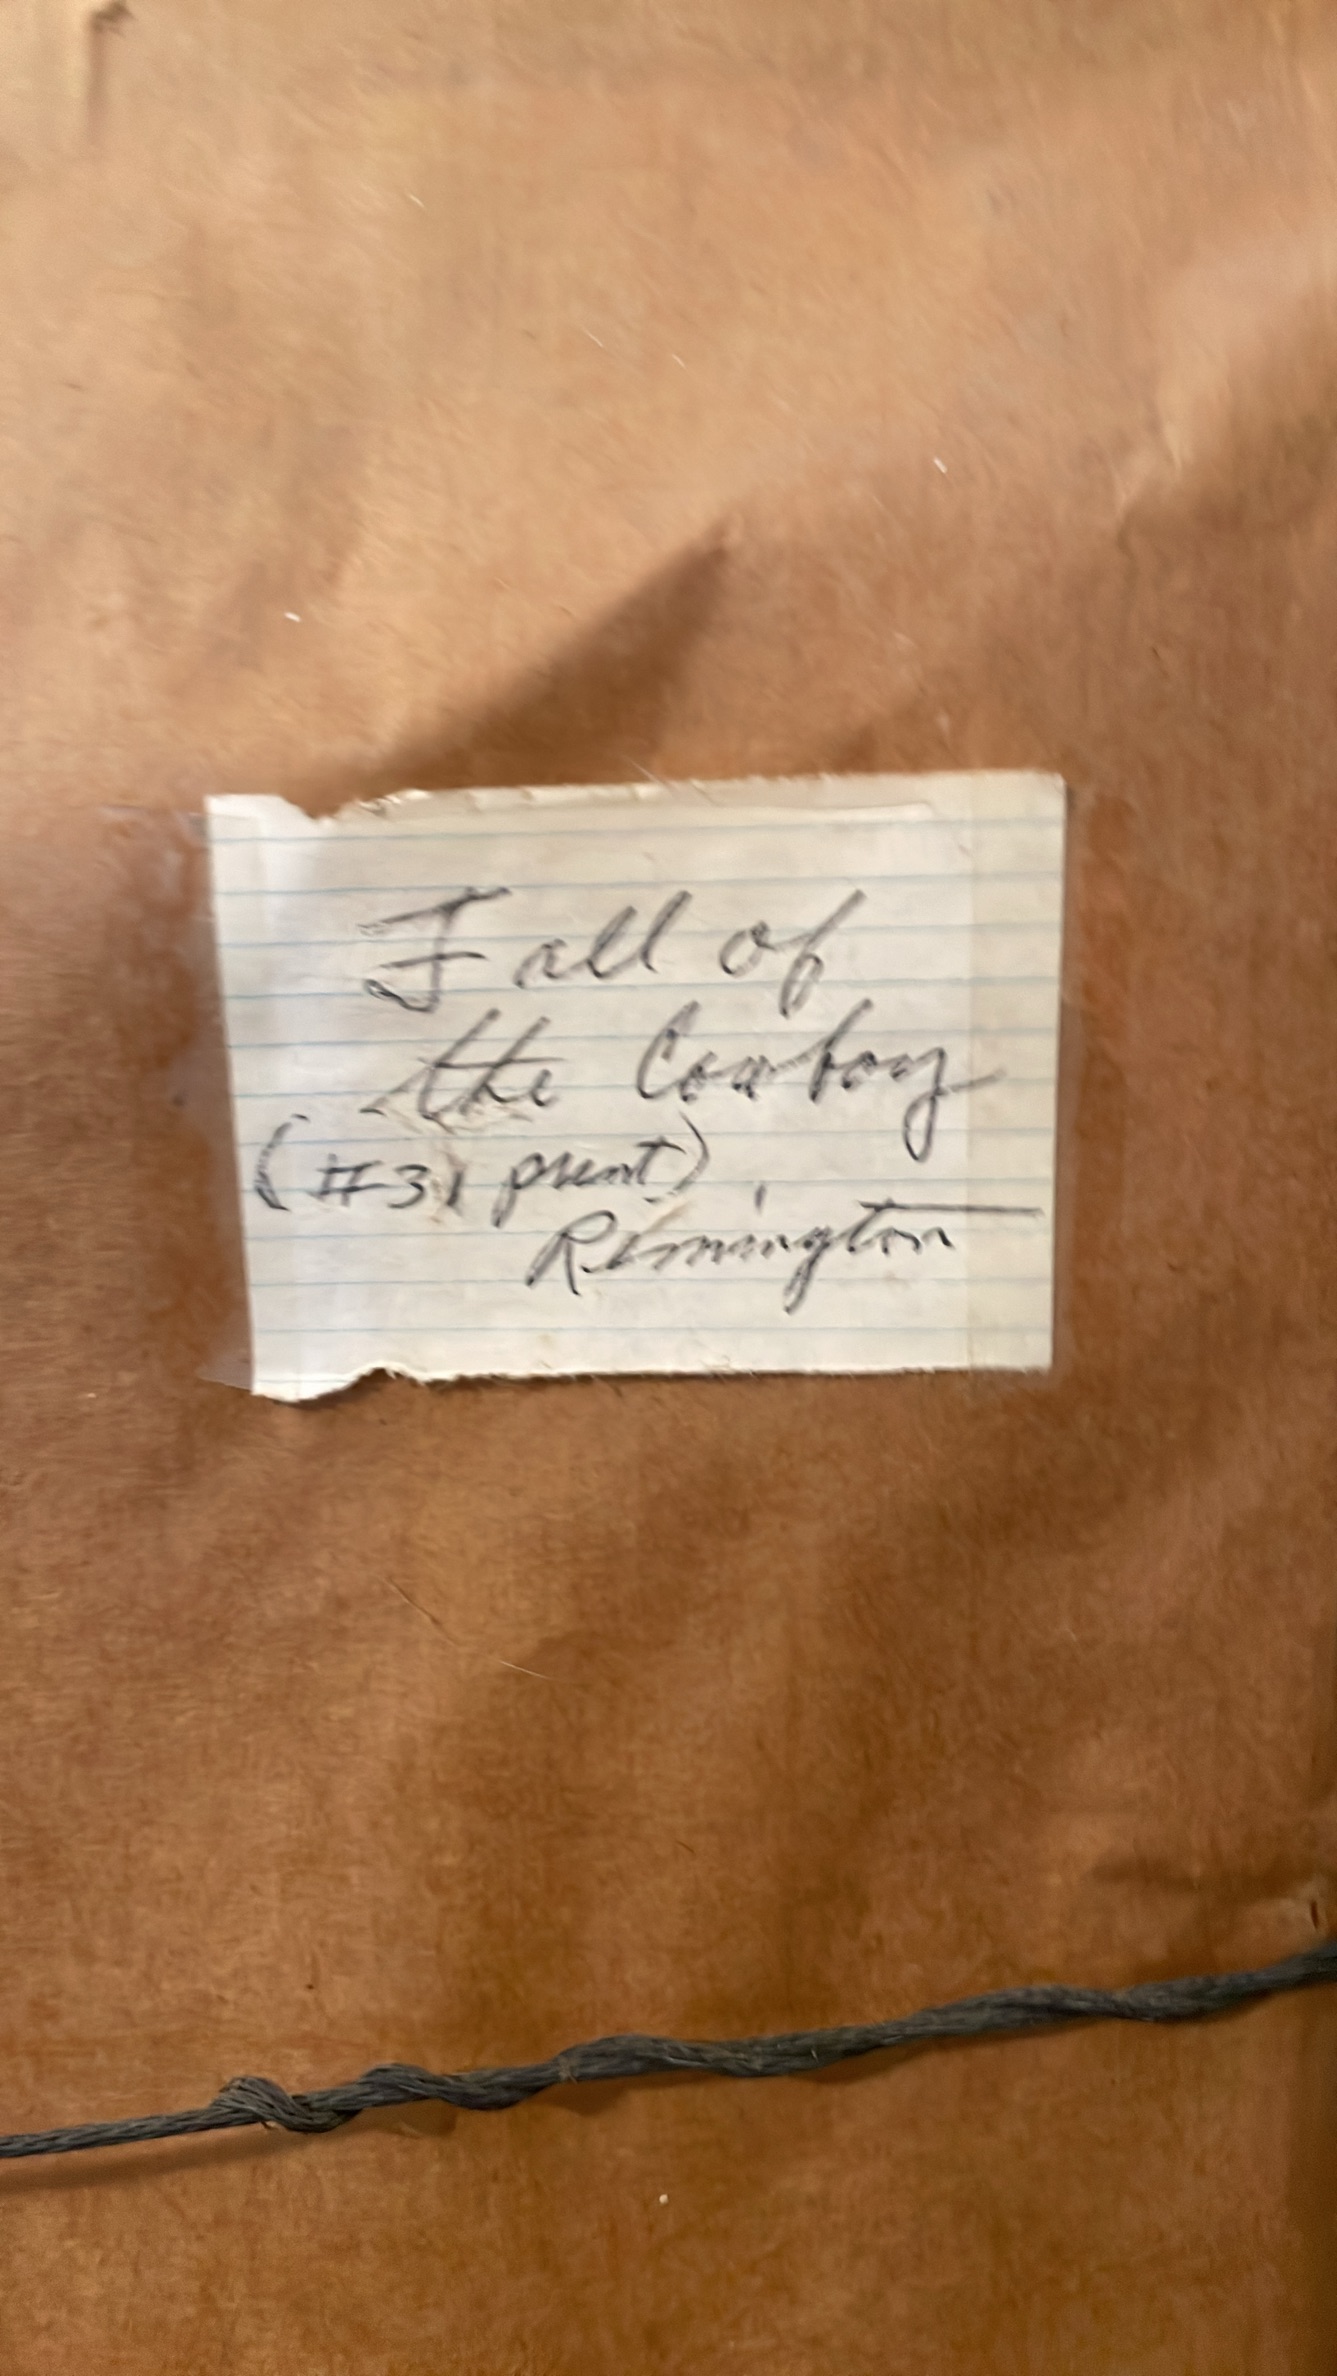 Fall of
the Cowboy
(#31 print)
Remington